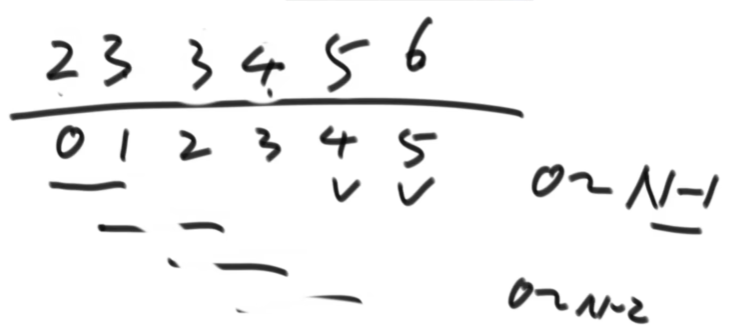 2 3 3 4 5 6
0 1 2 3 4 5
0~N-1
0~N-2